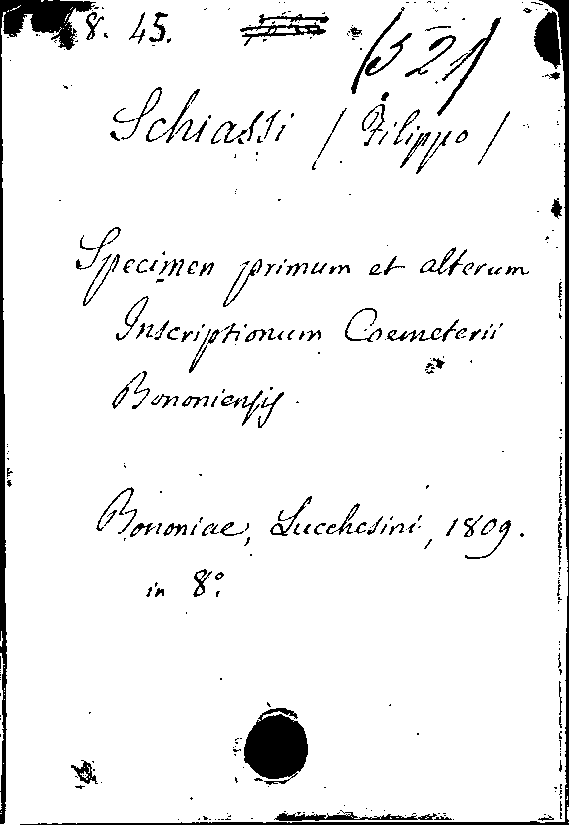 8. 45.
(521)
Schiassi / Filippo /
Specimen primum et alterum
Inscriptionum Coemeterii
Bononiensis.
Bononiae, Lucchesini, 1809.
in 8°.